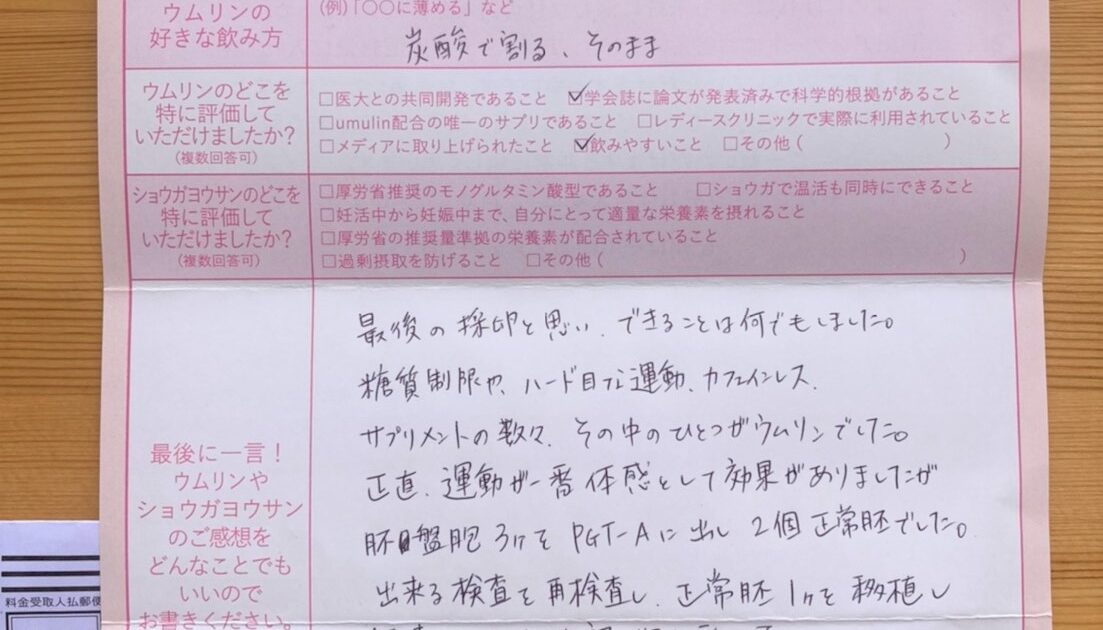 ウムリンの
好きな飲み方
(例)「〇〇に薄める」など
炭酸で割る、そのまま
ウムリンのどこを
特に評価して
いただけましたか?
(複数回答可)
□医大との共同開発であること ☑学会誌に論文が発表済みで科学的根拠があること
□umulin配合の唯一のサプリであること □レディースクリニックで実際に利用されていること
□メディアに取り上げられたこと ☑飲みやすいこと □その他( )
ショウガヨウサンのどこを
特に評価して
いただけましたか?
(複数回答可)
□厚労省推奨のモノグルタミン酸型であること □ショウガで温活も同時にできること
□妊活中から妊娠中まで、自分にとって適量な栄養素を摂れること
□厚労省の推奨量準拠の栄養素が配合されていること
□過剰摂取を防げること □その他( )
最後に一言!
ウムリンや
ショウガヨウサン
のご感想を
どんなことでも
いいので
お書きください。
最後の採卵と思い、できることは何でもしました。
糖質制限や、ハード目な運動、カフェインレス、
サプリメントの数々、その中のひとつがウムリンでした。
正直、運動が一番体感として効果がありましたが
胚盤胞3ケをPGT-Aに出し2個正常胚でした。
出来る検査を再検査し、正常胚1ケを移植し
料金受取人払郵便